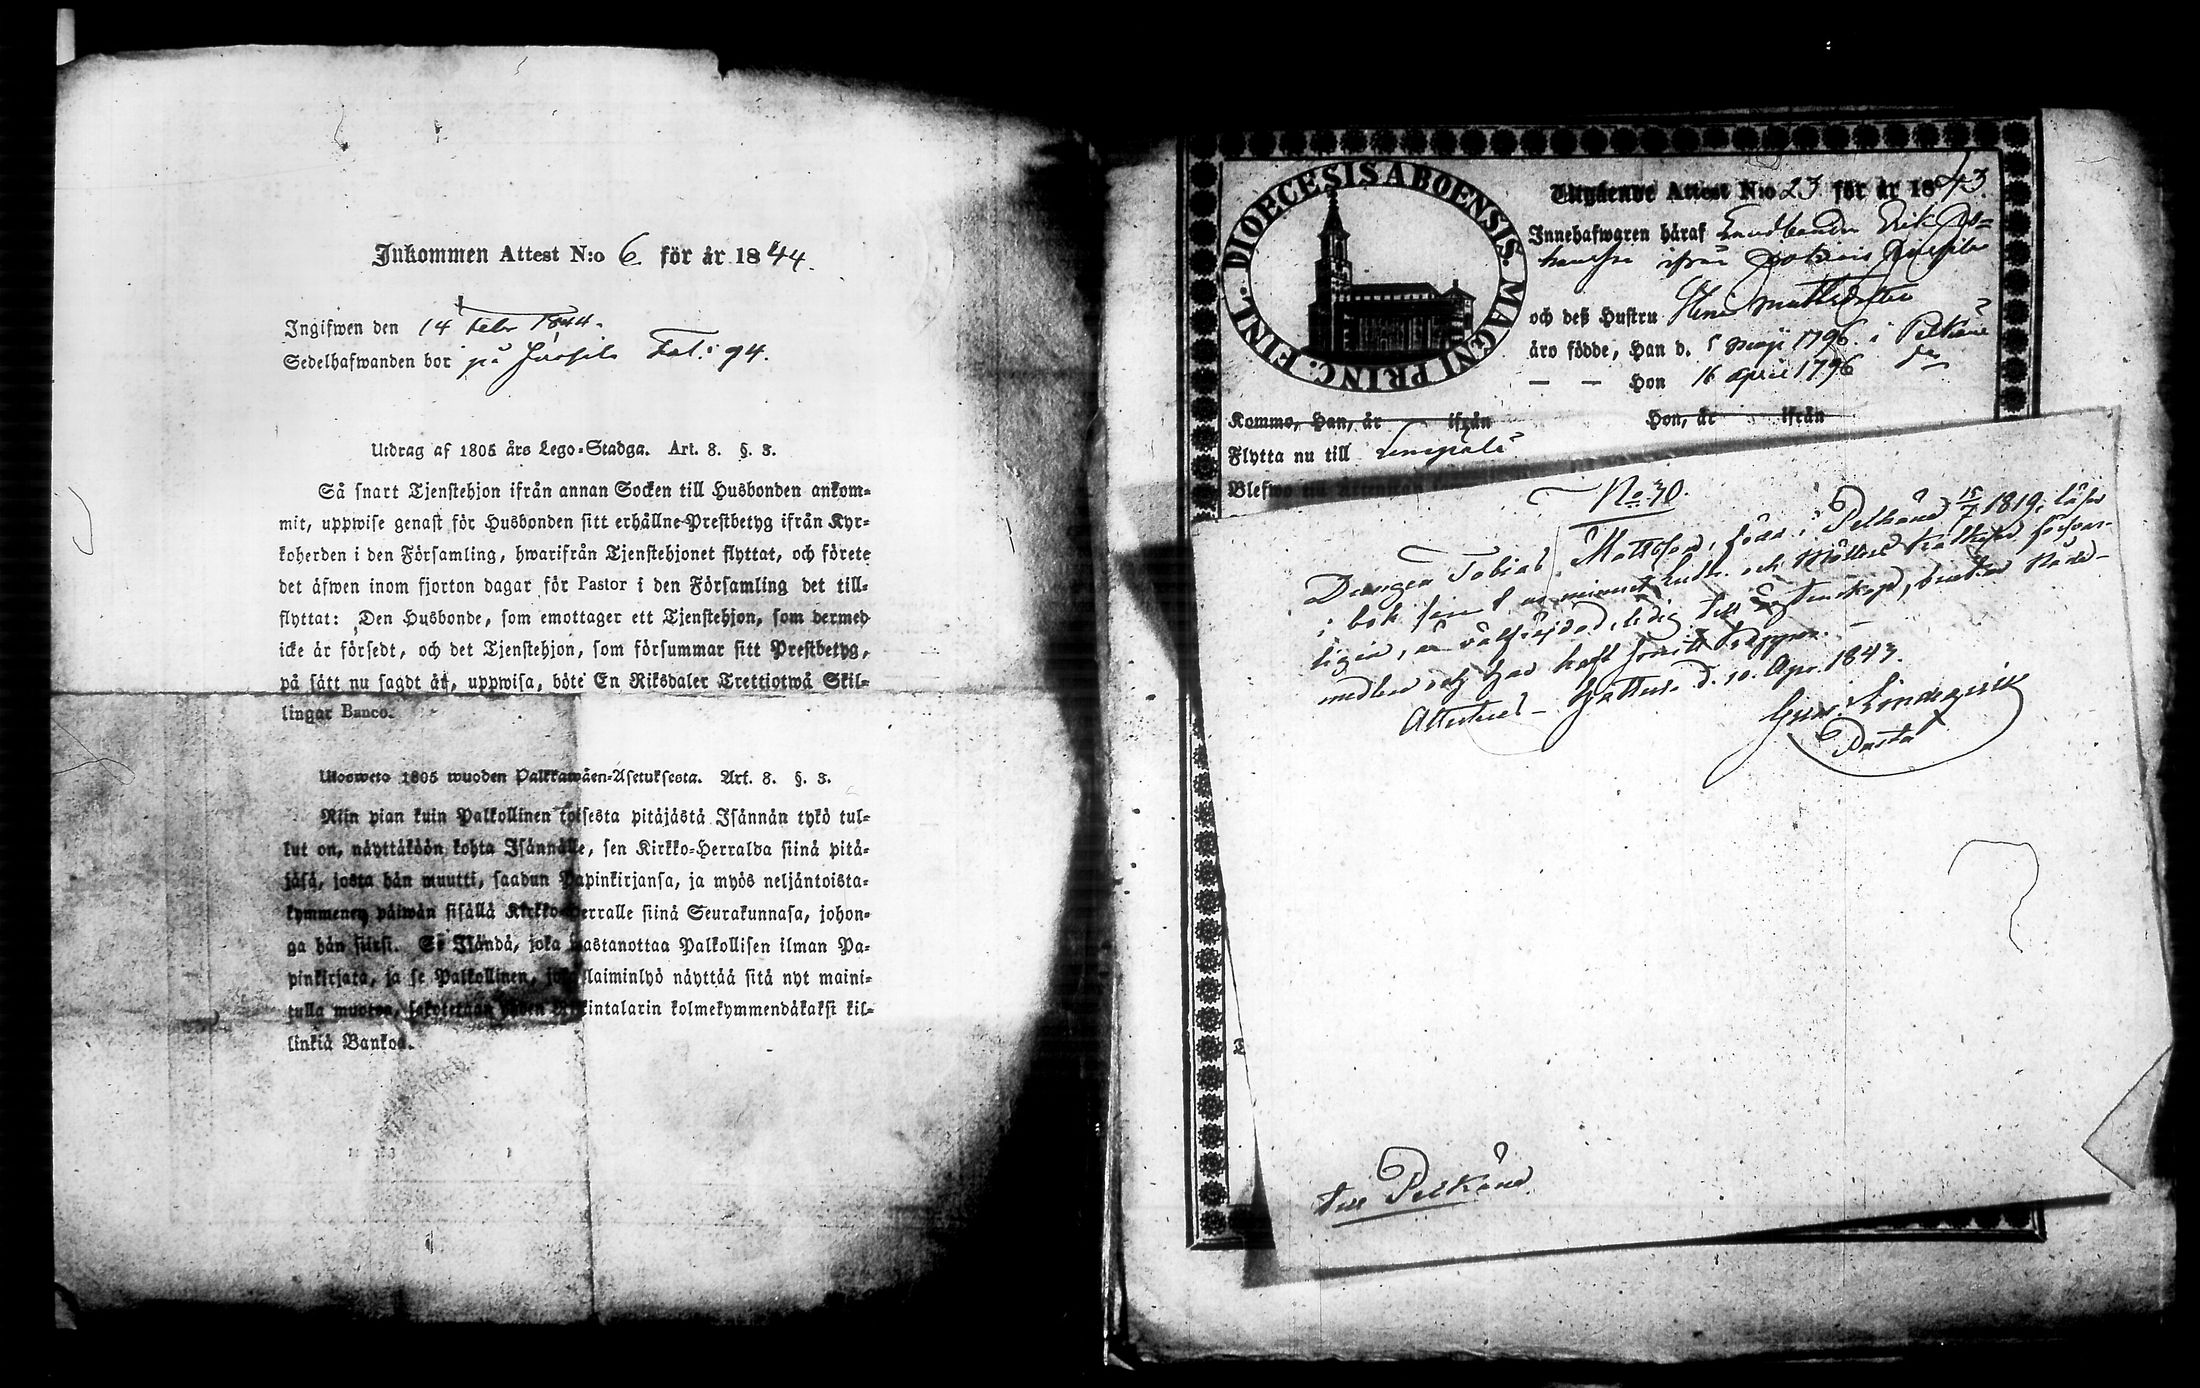 Inkommen Attest N:o 6 för år 1844.
Ingifwen den 14 Febr 1844.
Sedelhafwanden bor på Fol: 94.
Utdrag af 1805 års Lego-Stadga. Art. 8. §. 3.
Så snart Tjenstehjon ifrån annan Socken till Husbonden ankom-
mit, uppwise genast för Husbonden sitt erhållne Prestbetyg ifrån Kyr-
koherden i den Församling, hwarifrån Tjenstehjonet flyttat, och förete
det äfwen inom fjorton dagar för Pastor i den Församling det till-
flyttat: Den Husbonde, som emottager ett Tjenstehjon, som dermed
icke är försedt, och det Tjenstehjon, som försummar sitt Prestbetyg,
på sätt nu sagdt är, uppwisa, böte En Riksdaler Trettiotwå Skil-
lingar Banco.
Ulosweto 1805 wuoden Palkkawäen-Asetuksesta. Art. 8. §. 3.
Niin pian kuin Palkollinen toisesta pitäjästä Isännän tykö tul-
kut on, näyttäköön kohta Isännälle, sen Kirkko-Herralda siinä pitä-
jäsä, josta hän muutti, saadun Papinkirjansa, ja myös neljäntoista-
kymmenen päiwän sisällä Kirkko-Herralle siinä Seurakunnasa, johon-
ga hän siirsi. Se Isändä, joka wastanottaa Palkollisen ilman Pa-
pinkirjata, ja se Palkollinen, joka laiminlyö näyttää sitä nyt maini-
tulla muoton, sakotetaan yhden Riikintalarin kolmekymmendäkaksi kil-
linkiä Bankoa.
DIOECESIS ABOENSIS. MAGNI PRINC: FINL.
Utgående Attest N:o 23 för år 1843.
Innehafwaren häraf Landbonden Erik Jo-
hansson ifrån
och deß Hustru Stina Mattsdotter
äro födde, Han d. 5 Maji 1796 i Pelkäne
— — Hon 16 April 1796 do
Komms, Han, år ifrån Hon, år ifrån
Flytta nu till Lempälä
Blefwo
No 70.
Drängen Tobias Mattsson, född i Pelkäne 15/7 1819; läser
i bok, och Kristendom försvar-
ligen, är välfräjdad, ledig till Egtenskap, brukar Nåde-
medlen och har haft koppor.
Attesterad d. 10. Apr. 1843.
Pastor
till Pelkäne